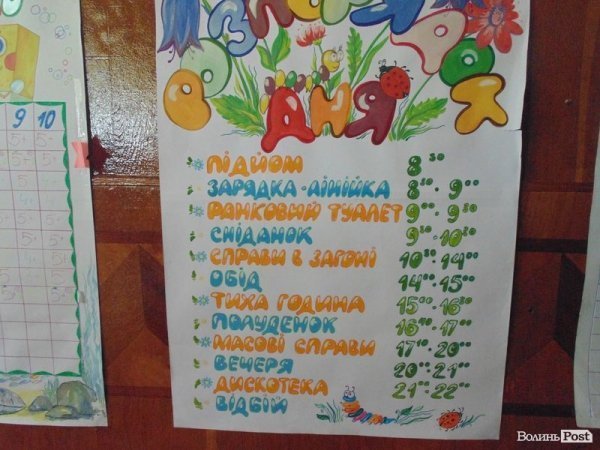 РОЗПОРЯДОК
ДНЯ
ПІДЙОМ 8 30
ЗАРЯДКА-ЛІНІЙКА 8 30 - 9 00
РАНКОВИЙ ТУАЛЕТ 9 00 - 9 30
СНІДАНОК 9 30 - 10 30
СПРАВИ В ЗАГОНІ 10 30 - 14 00
ОБІД 14 00 - 15 00
ТИХА ГОДИНА 15 00 - 16 30
ПОЛУДЕНОК 16 40 - 17 00
МАСОВІ СПРАВИ 17 10 - 20 00
ВЕЧЕРЯ 20 00 - 21 00
ДИСКОТЕКА 21 00 - 22 00
ВІДБІЙ
9 10
Волинь Post